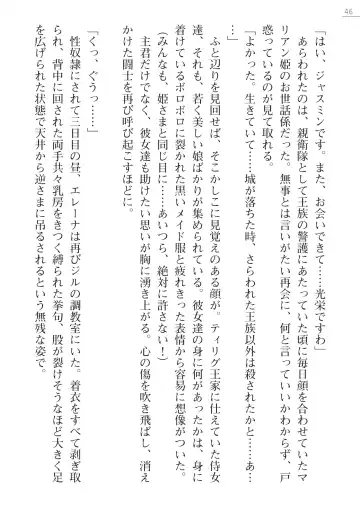 46
「はい、ジャスミンです。また、お会いできて……光栄ですわ」
あらわれたのは、親衛隊として王族の警護にあたっていた頃に毎日顔を合わせていたマ
リアン姫のお世話係だった。無事とは言いがたい再会に、何と言っていいかわからず、戸
惑っているのが見て取れる。
「よかった。生きていて……城が落ちた時、さらわれた王族以外は殺されたかと……あ…
ふと辺りを見回せば、そこかしこに見覚えのある顔が。ティリグ王家に仕えていた侍女
達、それも、若く美しい娘ばかりが集められている。彼女達の身に何があったかは、身に
着けているボロボロに裂かれた黒いメイド服と疲れきった表情から容易に想像がついた。
（みんなも、姫さまと同じ目に……あいつら、絶対に許さない！）
主君だけでなく、彼女達も助けたい思いが胸に湧き上がる。心の傷を吹き飛ばし、消え
かけた闘士を再び呼び起こすほどに。
性奴隷にされて三日目の昼。エレーナは再びジルの調教室にいた。着衣をすべて剥ぎ取
られ、背中に回された両手共々乳房をきつく縛られた挙句、股が裂けそうなほど大きく足
を広げられた状態で天井から逆さまに吊るされるという無残な姿で。
「くっ、ぐうっ……」